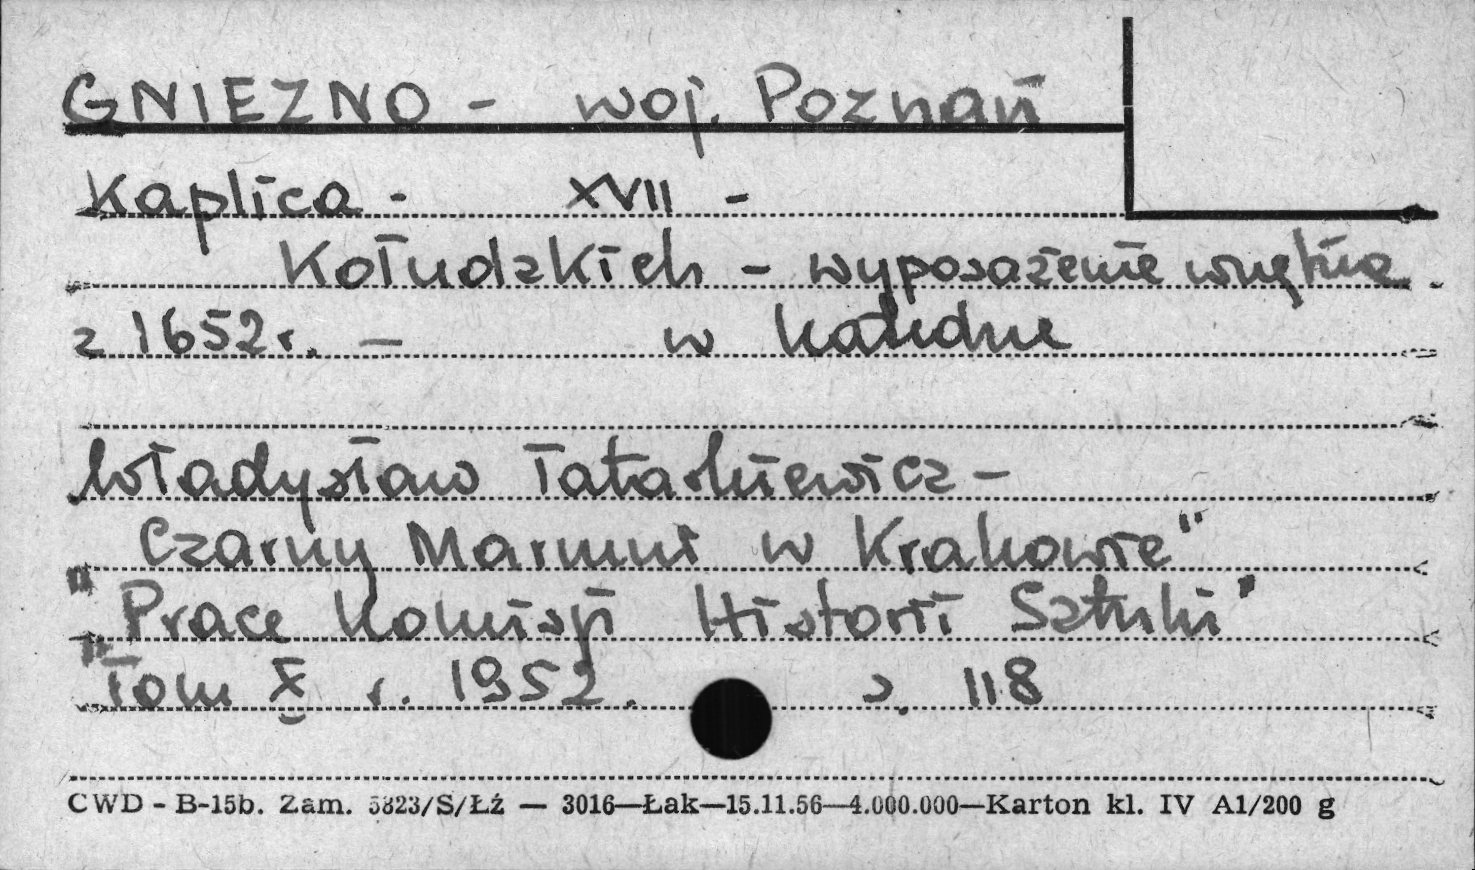 GNIEZNO - woj. Poznań
Kaplica - XVII -
Kołudzkich - wyposażenie wnętrza
z 1652 r. — w katedrze
Władysław Tatarkiewicz -
"Czarny Marmur w Krakowie"
"Prace Komisji Historii Sztuki"
Tom X r. 1952. s. 118
CWD - B-15b. Zam. 5823/S/Łź — 3016—Łak—15.11.56—4.000.000—Karton kl. IV A1/200 g